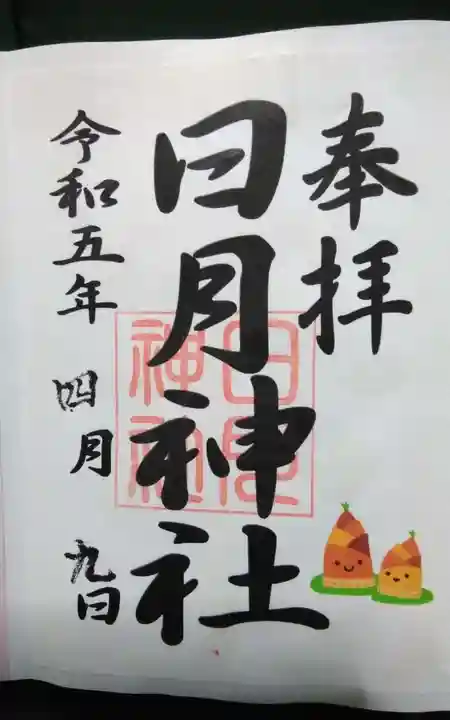 奉拝
日月神社
日月
神社
令和五年 四月 九日